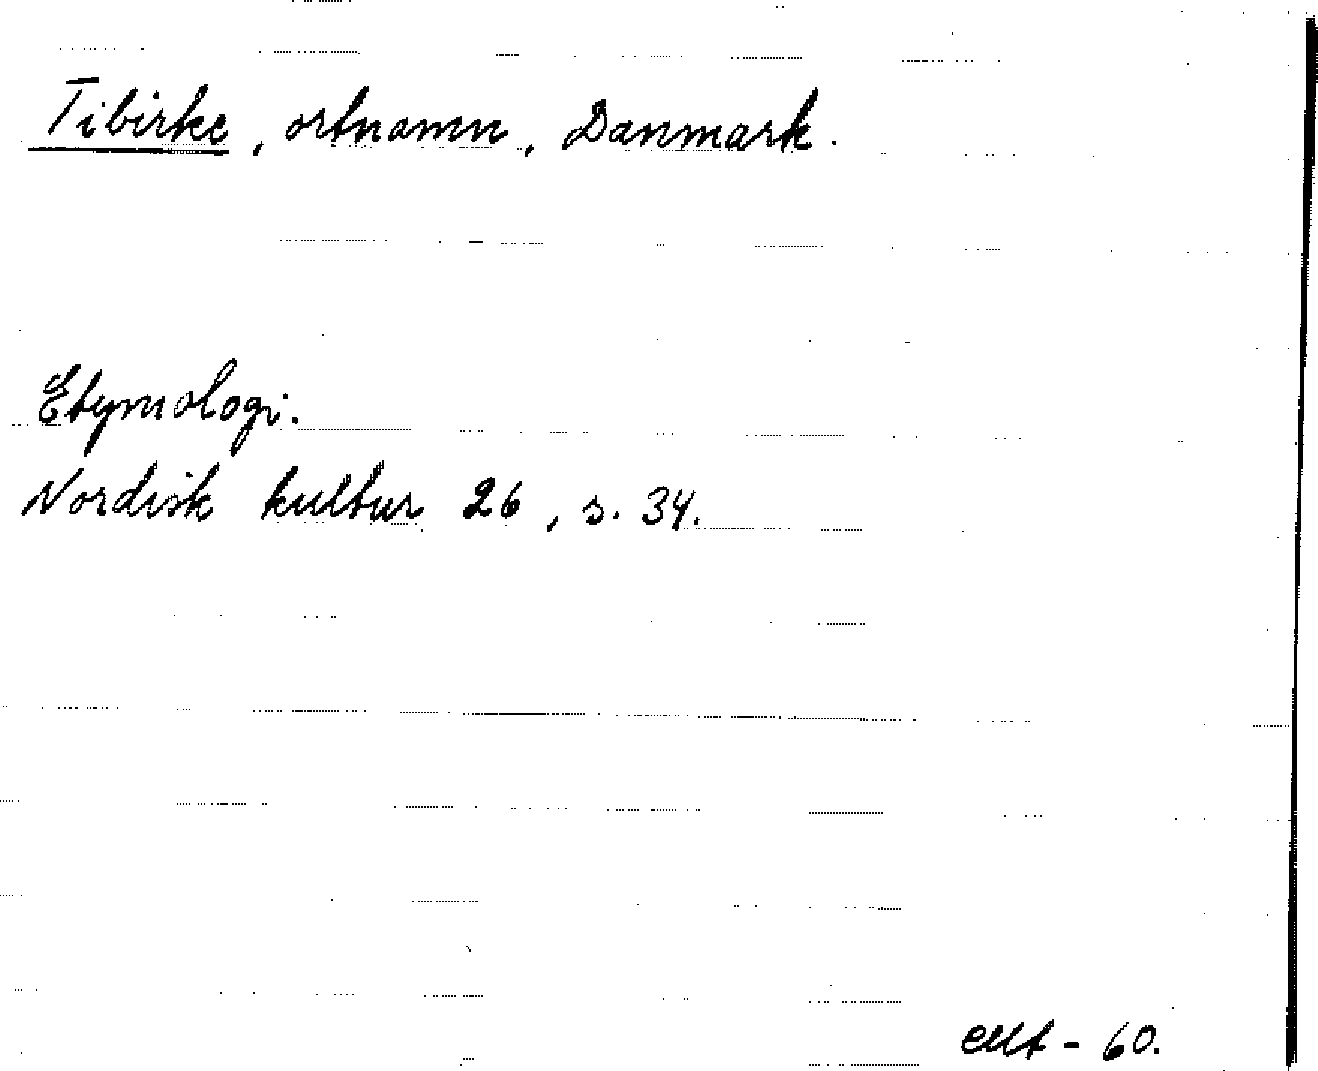 Tibirke, ortnamn, Danmark.
Etymologi.
Nordisk kultur 26, s. 34.
- 60.